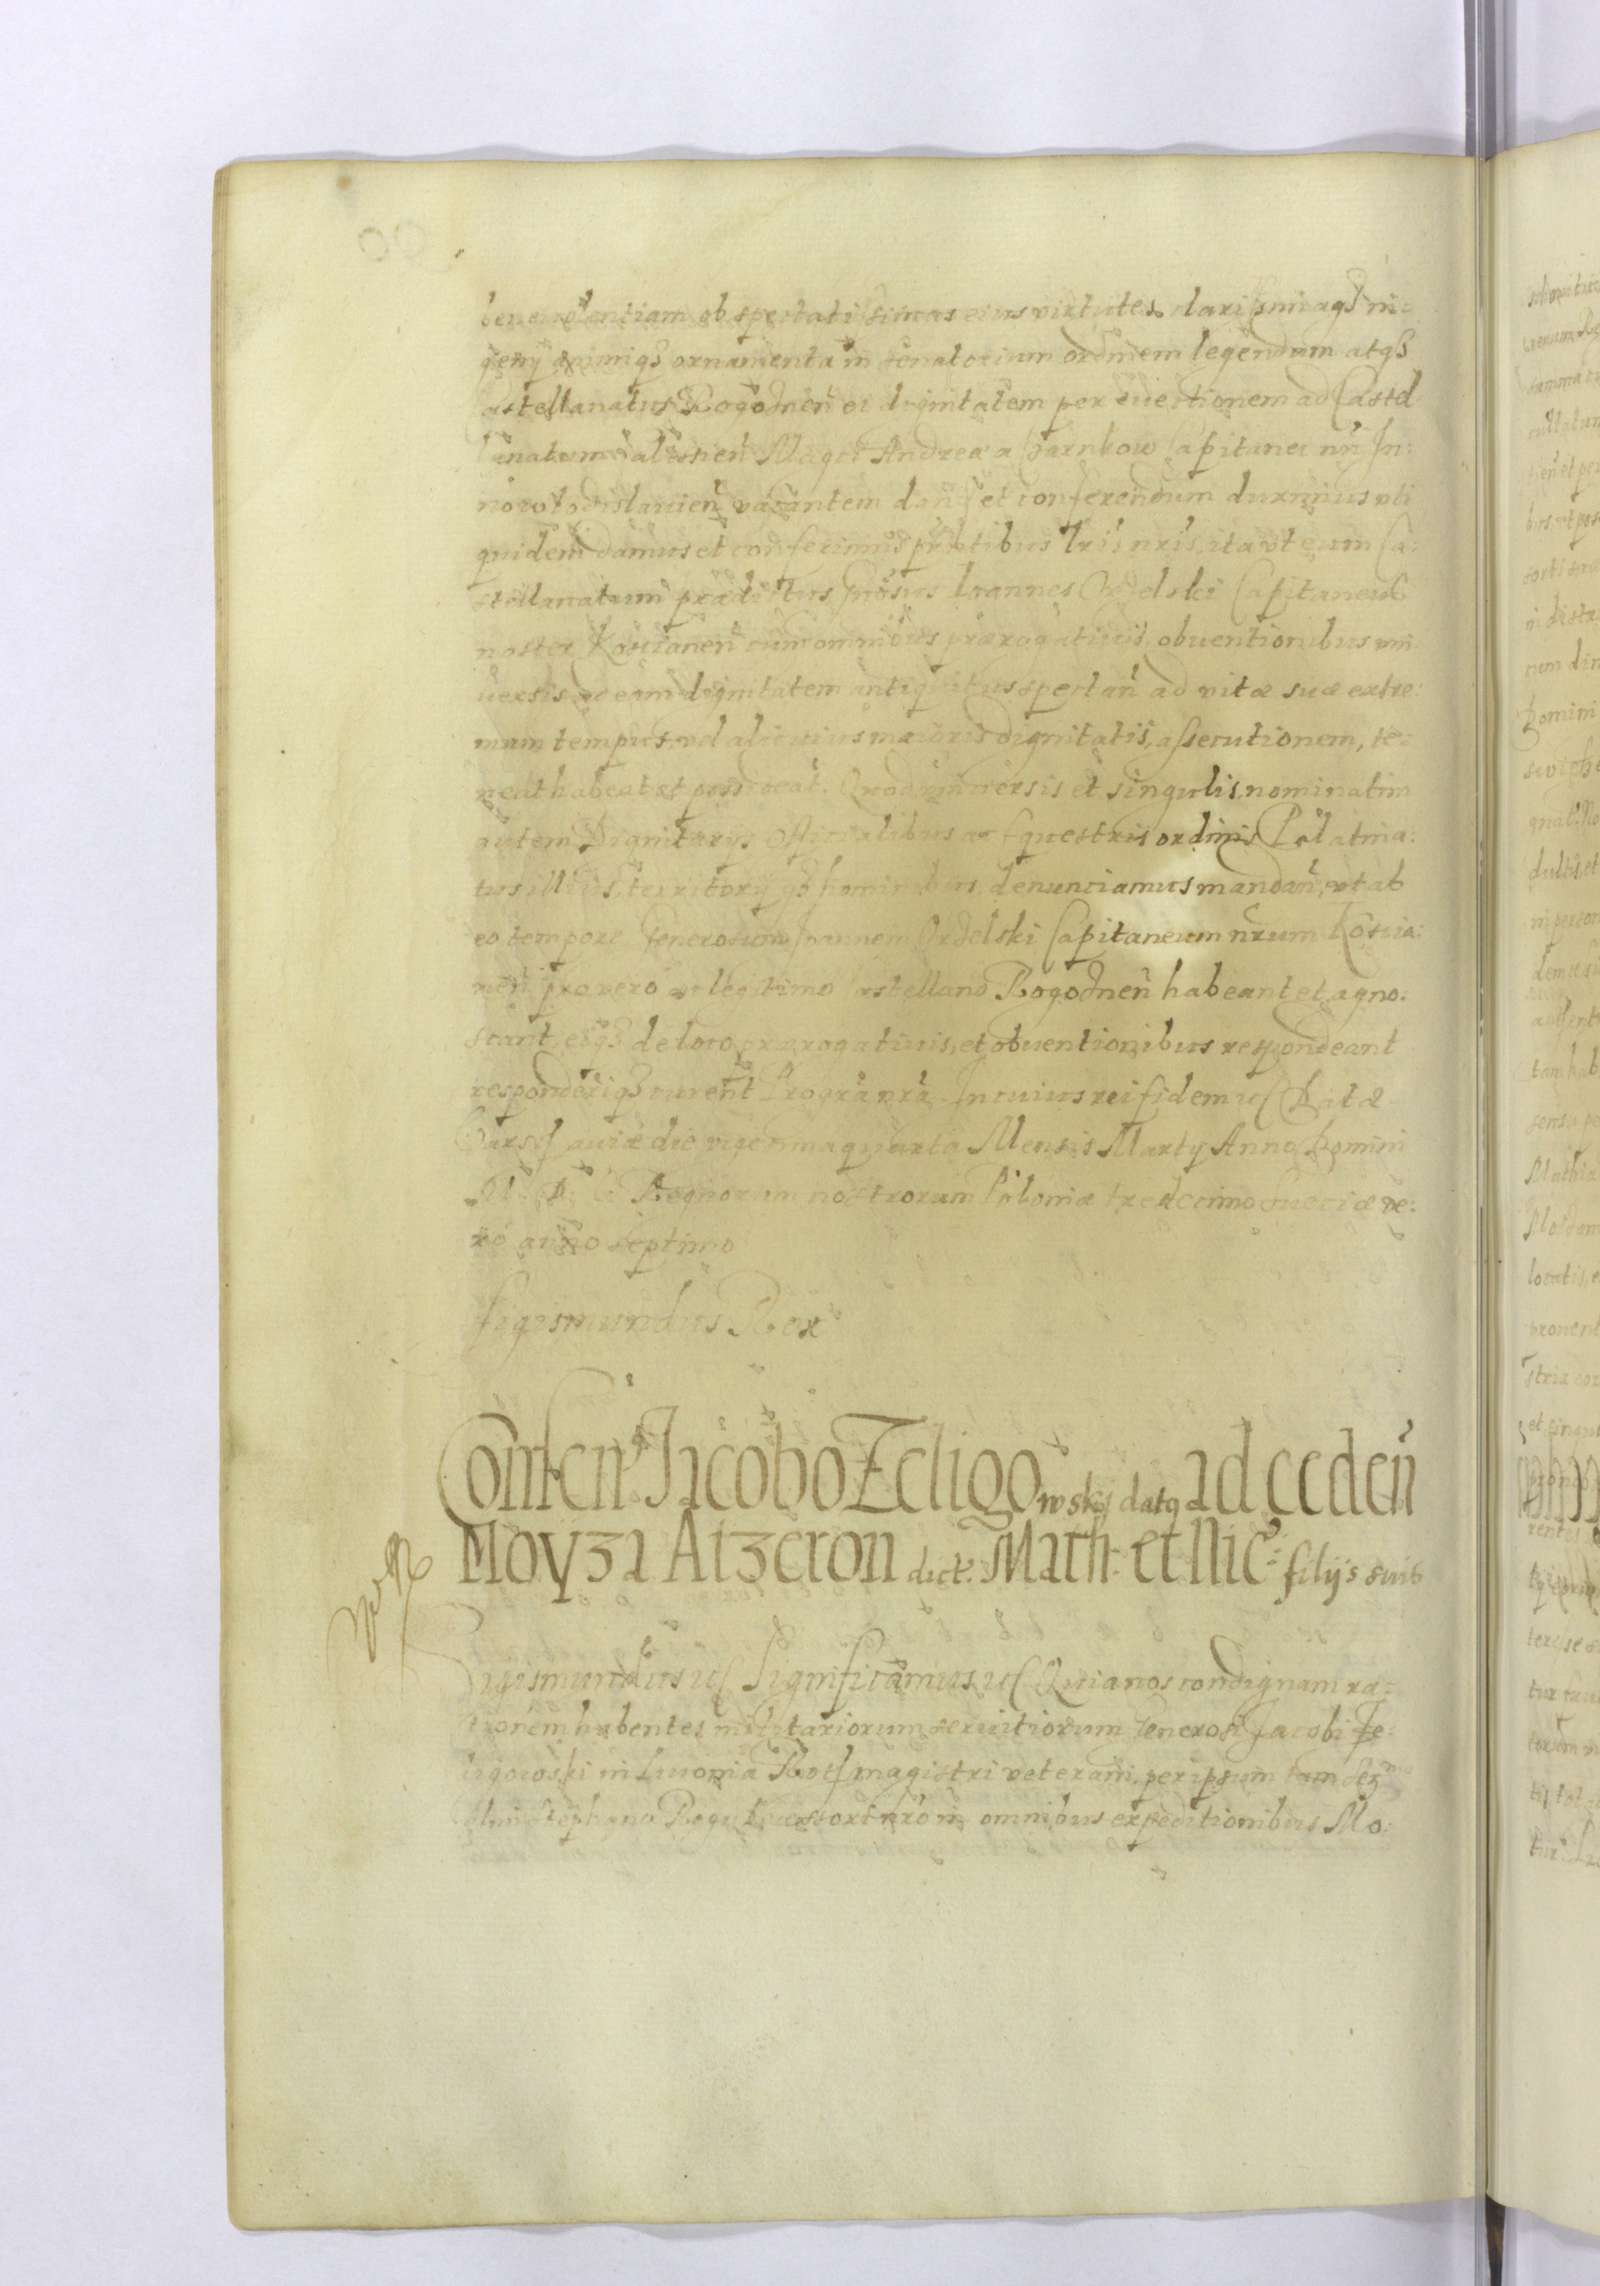 beneuolentiam ob spectatissimas eius virtutes, clarissimaqȝ in:
genij animiqȝ ornamenta in senatorium ordinem legendum atqȝ
Castellanatus Rogoznen̄ ei dignitatem per euectionem ad Castel
lanatum Calissien̄ Magci Andreæ a Czarnkow Capitanei nri In:
nowlodislauien̄ vacantem dan̄ et conferendum duximus vti
quidem damus et conferimus prntibus lris nris, ita vt eum Ca:
stellanatum prædictus Gnosus Ioannes Opelski Capitaneus
noster Koscianen̄ cum omnibus prærogatiuis, obuentionibus vni
uersis ad eam dignitatem antiquitus spectan̄ ad vitæ suæ extre:
mum tempus, vel alicuius maioris dignitatis, assecutionem, te:
neat habeat et possideat. Quod vniuersis et singulis, nominatim
autem Dignitarijs Officialibus ac Equestris ordinis Palatina:
tus illius, territorijqȝ hominibus denunciamus mandan̄, vt ab
eo tempore Generosum Ioannem Opelski Capitaneum nrum Koscia:
nen̄ pro vero ac legitimo Castellano Rogoznen̄ habeant et agno:
scant, eiqȝ de loco prærogatiuis, et obuentionibus respondeant
responderiqȝ curent Pro gra nra. In cuius rei fidem uc Datæ
Varsauiæ die vigesima quarta Mensis Martij Anno Domini
M. D. C. Regnorum nostrorum Poloniæ tredecimo Sueciæ ve:
ro anno septimo
Sigismundus Rex
Consen̄ Jacobo Zeligowsky datq ad ceden̄
Moyza Atzeron dict. Math. et Nic: filijs suis
Sigismundus uc Significamus uc Quia nos condignam ra:
tionem habentes militariorum seruitiorum Generosi Jacobi Ze:
ligowski in Liuonia Rothmagistri veterani, per ipsum tam Sermo
olim Stephano Regi Prædecessori nro in omnibus expeditionibus Mo: